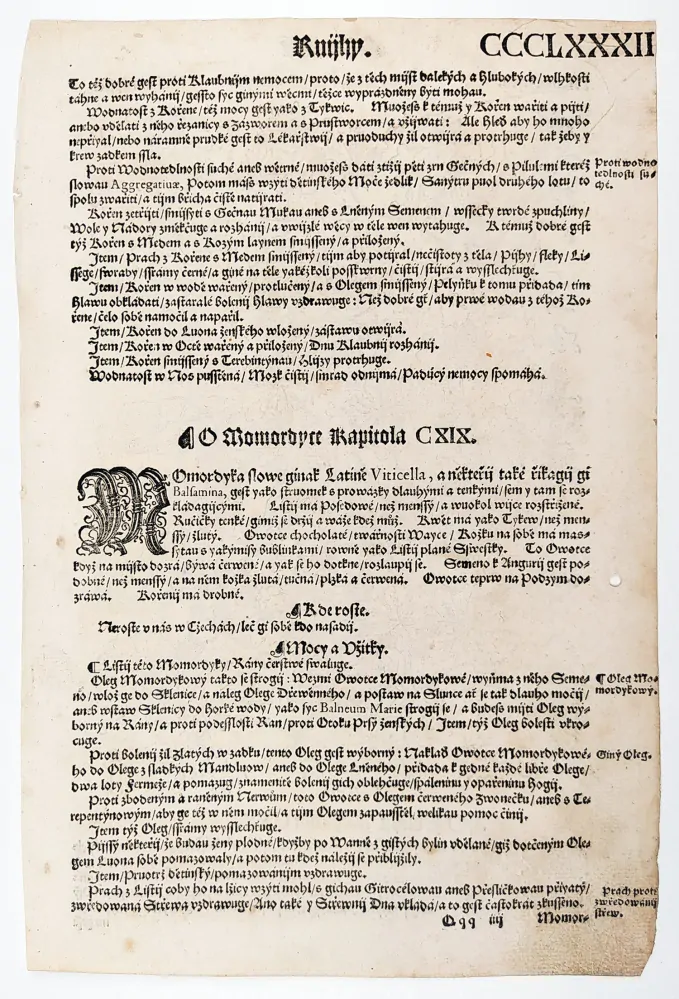 Knijhy. CCCLXXXII
To též dobré gest proti Klaubnijm nemocem/ proto/ že z těch mijst dalekých a hlubokých/ wlhkosti
táhne a wen wyhánij/ gessto syc ginými wěcmi/ těžce wyprázdněny býti mohau.
Wodnatost z Kořene/ též mocy gest yako z Tykwic. Muožeš k témuž y Kořen wařiti a píjti/
anebo vdělati z něho řezanicy s Zázworem a s Prustworcem/ a vžijwati: Ale hleď aby ho mnoho
nepřiyal/ nebo náramně prudké gest to Lékařstwij/ a pruoduchy žil otwijrá a protrhuge/ tak žeby y
krew zadkem ssla.
Proti Wodnotedlnosti suché aneb wětrné/ muožeš dáti ztíží pěti zrn Gečných/ s Pilulemi kteréž
slowau Aggregatiuæ, Potom máš wzýti dětinského Moče žedlik/ Sanýtru puol druhého lotu/ to
spolu zwařiti/ a tijm břicha čistě natijrati.
Proti wodno
tedlnosti su-
ché.
Kořen zetřijti/ smijsyti s Gečnau Mukau aneb s Lněným Semenem/ wssecky twrdé zpuchliny/
Wole y Nádory změkčuge a rozhánij/ a vwijzlé wěcy w těle wen wytahuge. K témuž dobré gest
týž Kořen s Medem a s Kozým laynem smijssený/ a přiložený.
Item/ Prach z Kořene s Medem smijssený/ tijm aby potijral/ nečistoty z těla/ Pijhy/ fleky/ Li-
ssege/ swraby/ ssrámy černé/ a giné na těle yakéžkoli posskwrny/ čistij/ stijrá a wysslechťuge.
Item/ Kořen w wodě wařený/ protlučený/ a s Olegem smijssený/ Pelyňku k tomu přidada/ tím
Hlawu obkládati/ zastaralé bolenij Hlawy vzdrawuge: Než dobré gt/ aby prwé wodau z téhož Ko-
řene/ čelo sobě namočil a napařil.
Item/ Kořen do Luona ženského wložený/ zástawu otwijrá.
Item/ Kořen w Octě wařený a přiložený/ Dnu Klaubnij rozhánij.
Item/ Kořen smijssený s Terebintýnau/ Hlijzy protrhuge.
Wodnatost w Nos pusstěná/ Mozk čistij/ smrad odnijmá/ Padúcý nemocy spomáhá.
¶ O Momordyce Kapitola CXIX.
MOmordyka slowe ginak Latině Viticella, a někteřij také řikagij gi
Balsamina, gest yako struomek s prowázky dlauhými a tenkými/ sem y tam se roz-
kládagijcými. Listij má Posedowé/ než menssý/ a wuokol wijce rozstřižené.
Ručičky tenké/ gimiž se držij a wáže kdež muž. Kwět má yako Tykew/ než men-
ssý/ žlutý. Owotce chocholaté/ twárnosti Wayce/ Kožku na sobě má mas-
sytau s yakýmisy bublinkami/ rowně yako Listij plané Ssiwestky. To Owotce
když na mijsto dozrá/ býwá čerwené/ a yak se ho dotkne/ rozlaupij se. Semeno k Angurij gest po-
dobné/ než menssý/ a na něm kožka žlutá/ tučná/ plzká a čerwená. Owotce teprw na Podzym do-
zráwá. Kořenij má drobné.
¶ Kde roste.
Neroste v nás w Czechách/ leč gi sobě kdo nasadij.
¶ Mocy a Vžitky.
¶ Listij této Momordyky/ Rány čerstwé swaluge.
Oleg Momordykowý takto se strogij: Wezmi Owotce Momordykowé/ wyňma z něho Seme-
no/ wlož ge do Sklenice/ a naleg Olege Dřewěnného/ a postaw na Slunce ať se tak dlauho močij/
aneb wstaw Sklenicy do Horké wody/ yako syc Balneum Marie strogij se/ a budeš mijti Oleg wý-
borný na Rány/ a proti podesslosti Ran/ proti Otoku Prsý ženských/ Item/ týž Oleg bolesti vkro-
cuge.
¶ Oleg Mo-
mordykowý.
Proti bolenij žil zlatých w zadku/ tento Oleg gest wýborný: Naklaď Owotce Momordykowé-
ho do Olege z sladkých Mandluow/ aneb do Olege Lněného/ přidada k gedné každé libře Olege/
dwa loty Fermeže/ a pomazug/ znamenitě bolenij gich oblehčuge/ spáleninu y opařeninu hogij.
Giný Oleg.
Proti zbodeným a raněným Nerwům/ toto Owotce s Olegem čerweného Zwonečku/ aneb s Te-
repentýnowým/ aby ge též w něm močil/ a tijm Olegem zapausstěl/ welikau pomoc činij.
Item týž Oleg/ ssrámy wysslechťuge.
Pijssý někteřij/ že budau ženy plodné/ kdyžby po Wanně z gistých bylin vdělané/ giž dotčeným Ole-
gem Luona sobě pomazowaly/ a potom tu kdež náležij se přibližily.
Item/ Pruotrž dětinský/ pomazowanijm vzdrawuge.
Prach z Listij coby ho na lžicy wzýti mohl/ s gichau Gitrocélowau aneb Přesličkowau přiyatý/
zwředowaná Střewa vzdrawuge/ Ano také y Střewnij Dna vkládá/ a to gest častokrát zkussseno.
Prach proti
zwředowaný
střew.
Qqq iiij Momor-